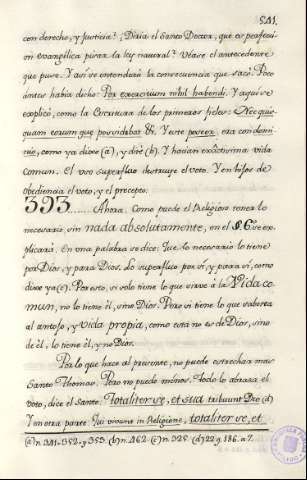 541.
con derecho, y justicia? ¿Diria el Santo Doctor, que es perfeccion
evangelica pisar la ley natural? Vease el antecedente
que puse. Y así se entenderá la consecuencia que sacó. Poco
antes havia dicho: Per exercitium nihil habendi. Y aqui se
explicó, como la Escritura de los primeros fieles: Nec quisquam
eorum quae possidebat &. Y este poseer era con dominio,
como ya dixe (a), y dixe (b). Y hacian exactisima vida
comun. El uso superfluo destruye el voto. Y en hijos de
obediencia el voto, y el precepto.
393..... Ahora. Como puede el Religioso tener lo
necesario, sin nada absolutamente, en el §. 6 se explicará.
En una palabra se dice: Que lo necesario lo tiene
por Dios, y para Dios. Lo superfluo por sí, y para sí, como
dixe ya (c). Por esto, si solo tiene lo que sirve á la Vida comun,
no lo tiene él, sino Dios. Pero si tiene lo que
al antojo, y vida propia, como esta no es de Dios, sino
de él, lo tiene él, y no Dios.
Por lo que hace al presente, no puede estrechar mas
Santo Thomas. Pero no puede menos. Todo lo abraza el
voto, dice el Santo: Totaliter se, et sua tribuunt Deo (d)
Y en otra parte: Qui vivunt in Religione, totaliter se, et
(a) n. 341-352. y 353. (b) n. 462. (c) n. 325. (d) 22. q. 186. a. 7.